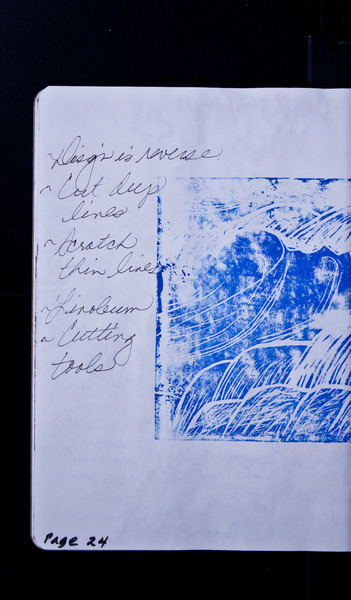 ~ Design is reverse.
~ Cut deep
lines
~ Scratch
thin lines
~ Linoleum
~ Cutting
tools
Page 24